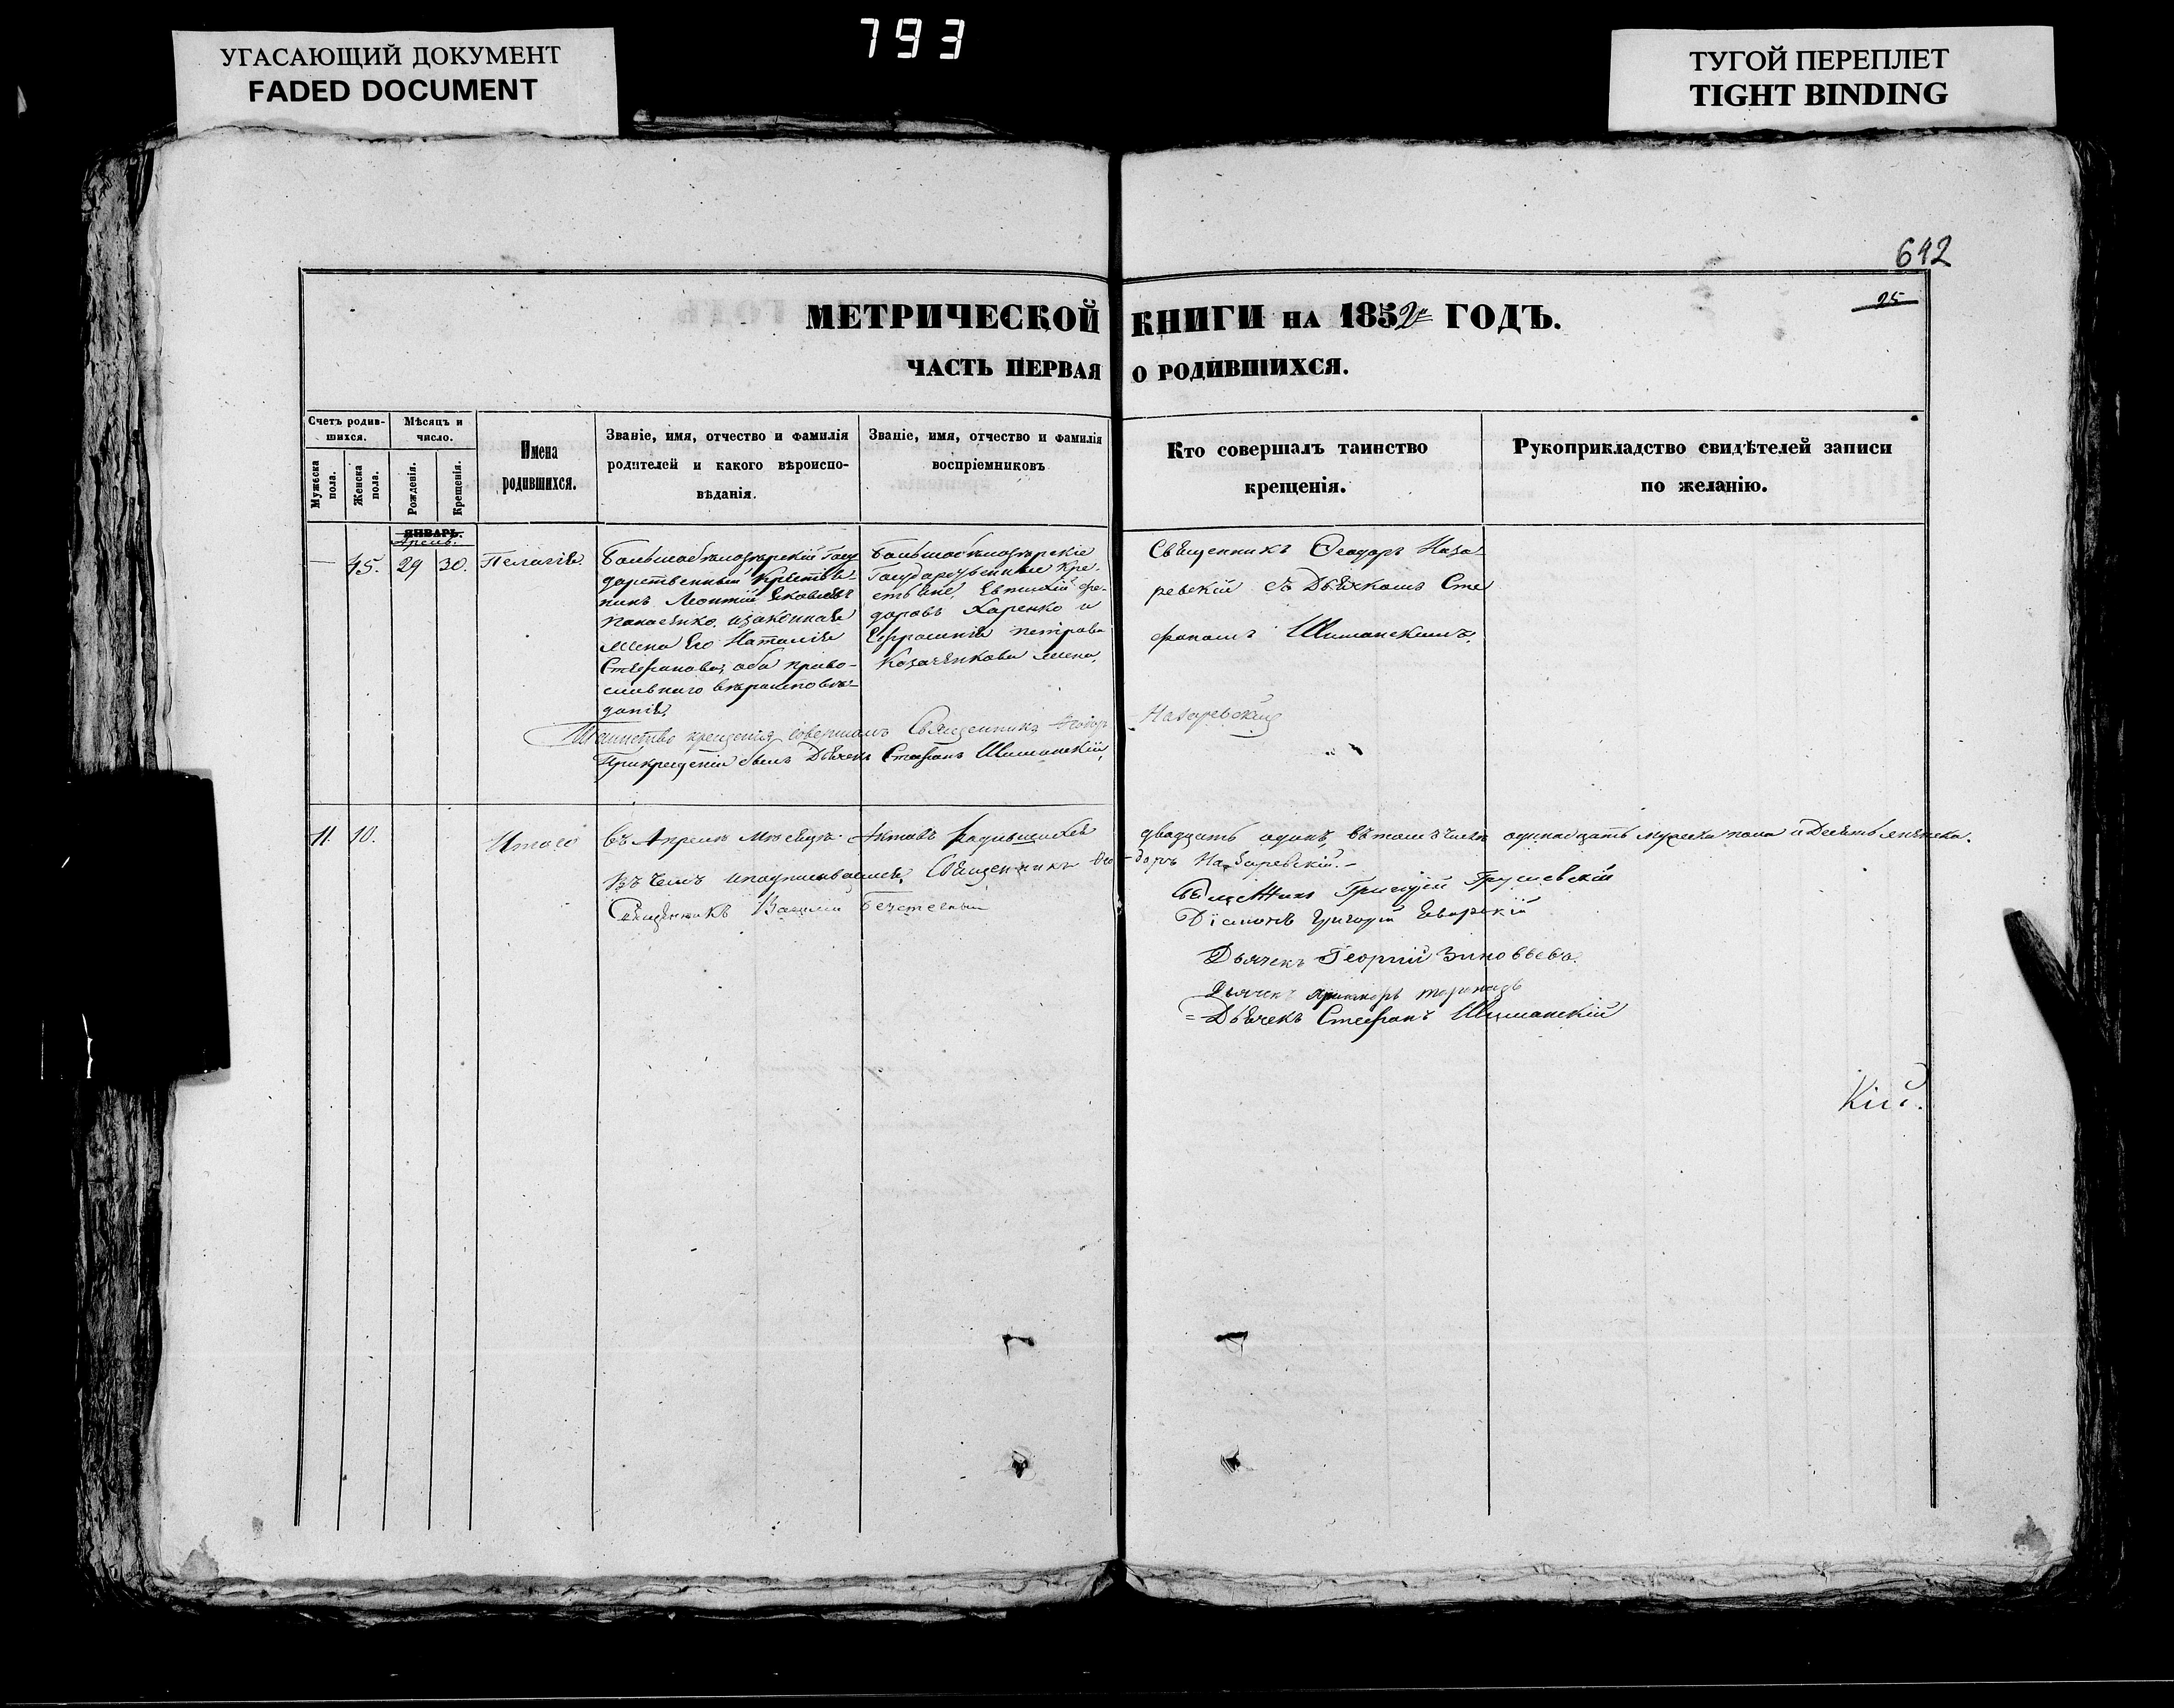 793
УГАСАЮЩИЙ ДОКУМЕНТ
FADED DOCUMENT
ТУГОЙ ПЕРЕПЛЕТ
TIGHT BINDING
642
25
МЕТРИЧЕСКОЙ КНИГИ НА 1852 ГОДЪ.
ЧАСТЬ ПЕРВАЯ О РОДИВШИХСЯ.
Счетъ родив-
шихся.
Мужеска пола.
Женска пола.
Мѣсяцъ и
число.
Рожденія.
Крещенія.
Имена
родившихся.
Званіе, имя, отчество и фамилія
родителей и какого вѣроиспо-
вѣданія.
Званіе, имя, отчество и фамилія
воспріемниковъ
Кто совершалъ таинство
крещенія.
Рукоприкладство свидѣтелей записи
по желанію.
ЯНВАРЬ.
45. 29 30. Пелагія
Большебѣлозѣрскій Госу
дарственный Крестья
нинъ Леонтій Яковлевъ
законная
жена Его Наталія
Стефанова, оба право-
славнаго вѣроисповѣ-
данія.
Большебѣлозѣрскіе
Государственные Кре-
стьяне, Евтихій Фе-
доровъ Харенко и
Евфросинія Петрова
Козаченкова жена.
Священникъ Ѳеодоръ Наза
ревскій съ Дьячкомъ Сте
фаномъ Шиманскимъ.
Таинство крещенія совершалъ Священникъ Ѳеодоръ Назаревскій
При крещеніи былъ Дьячекъ Стефанъ Шиманскій,
11. 10. Итого въ Апрелѣ мѣсяцѣ Актовъ родившихся двадцать одинъ, въ томъ числѣ одинадцать мужеска пола и Десять женска.
Въ чемъ и подписываемся, Священникъ Ѳео-доръ Назаревскій.
Священникъ Василій
Священникъ Григорій Грушевскій
Діаконъ Григорій
Дьячекъ Георгій Зиновьевъ.
Дьячекъ
Дьячекъ Стефанъ Шиманскій
Кій.